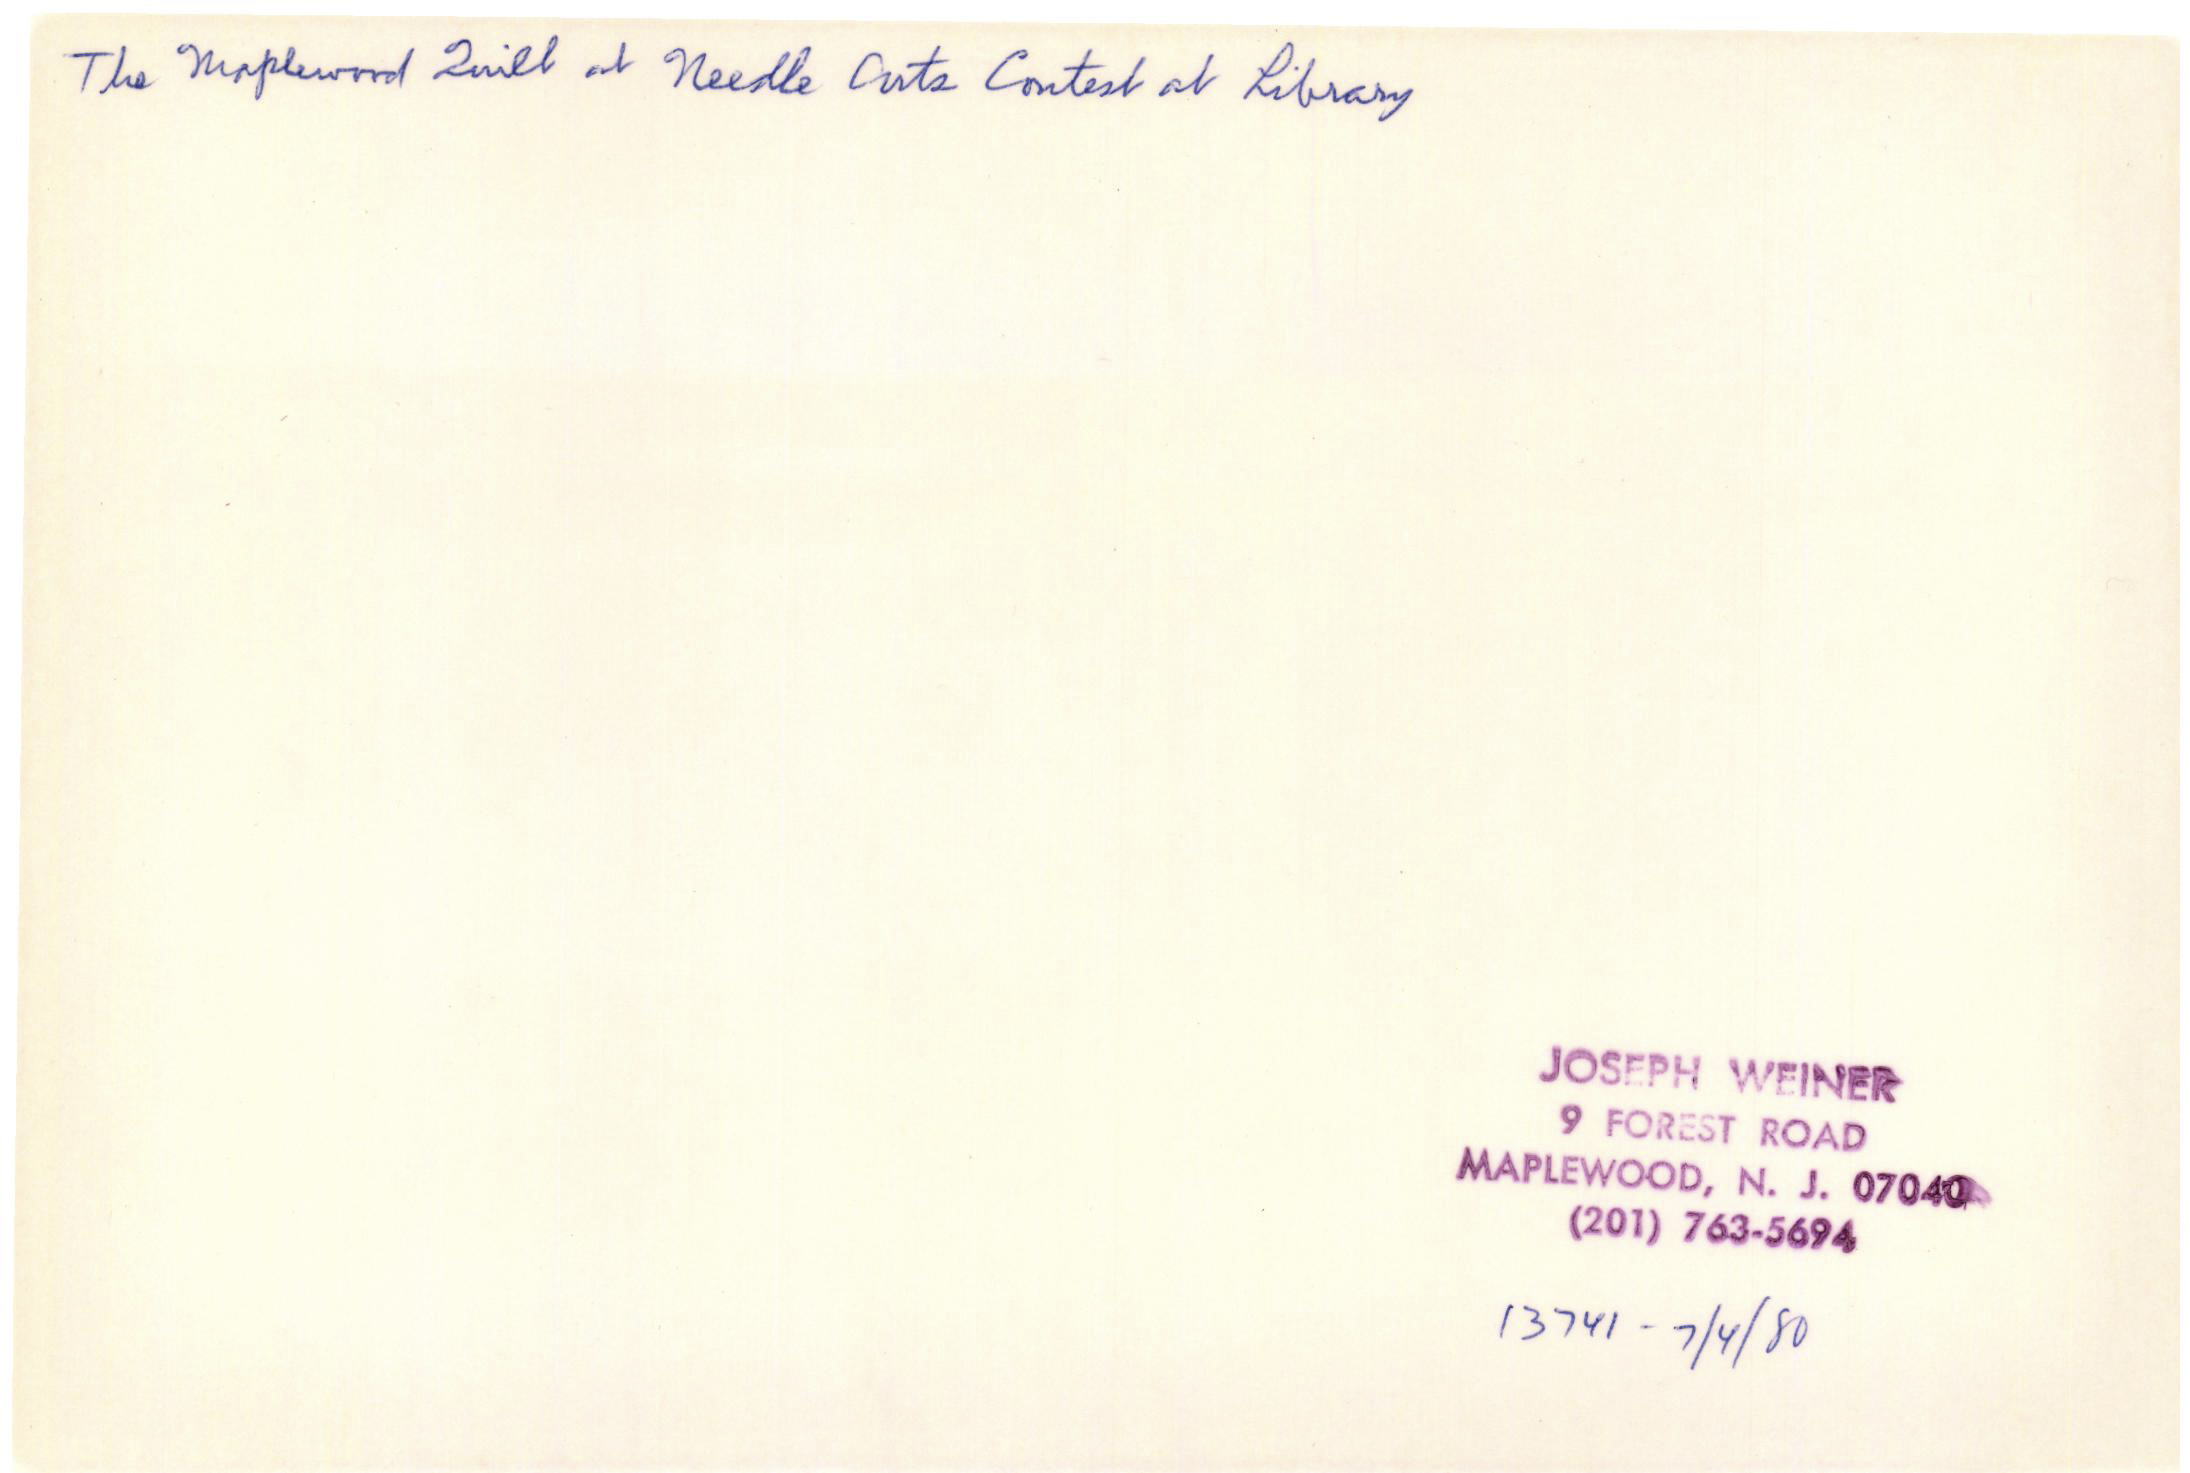 The Maplewood Quilt at Needle Arts Contest at Library
JOSEPH WEINER
9 FOREST ROAD
MAPLEWOOD, N. J. 07040
(201) 763-5694
13741 - 7/4/80